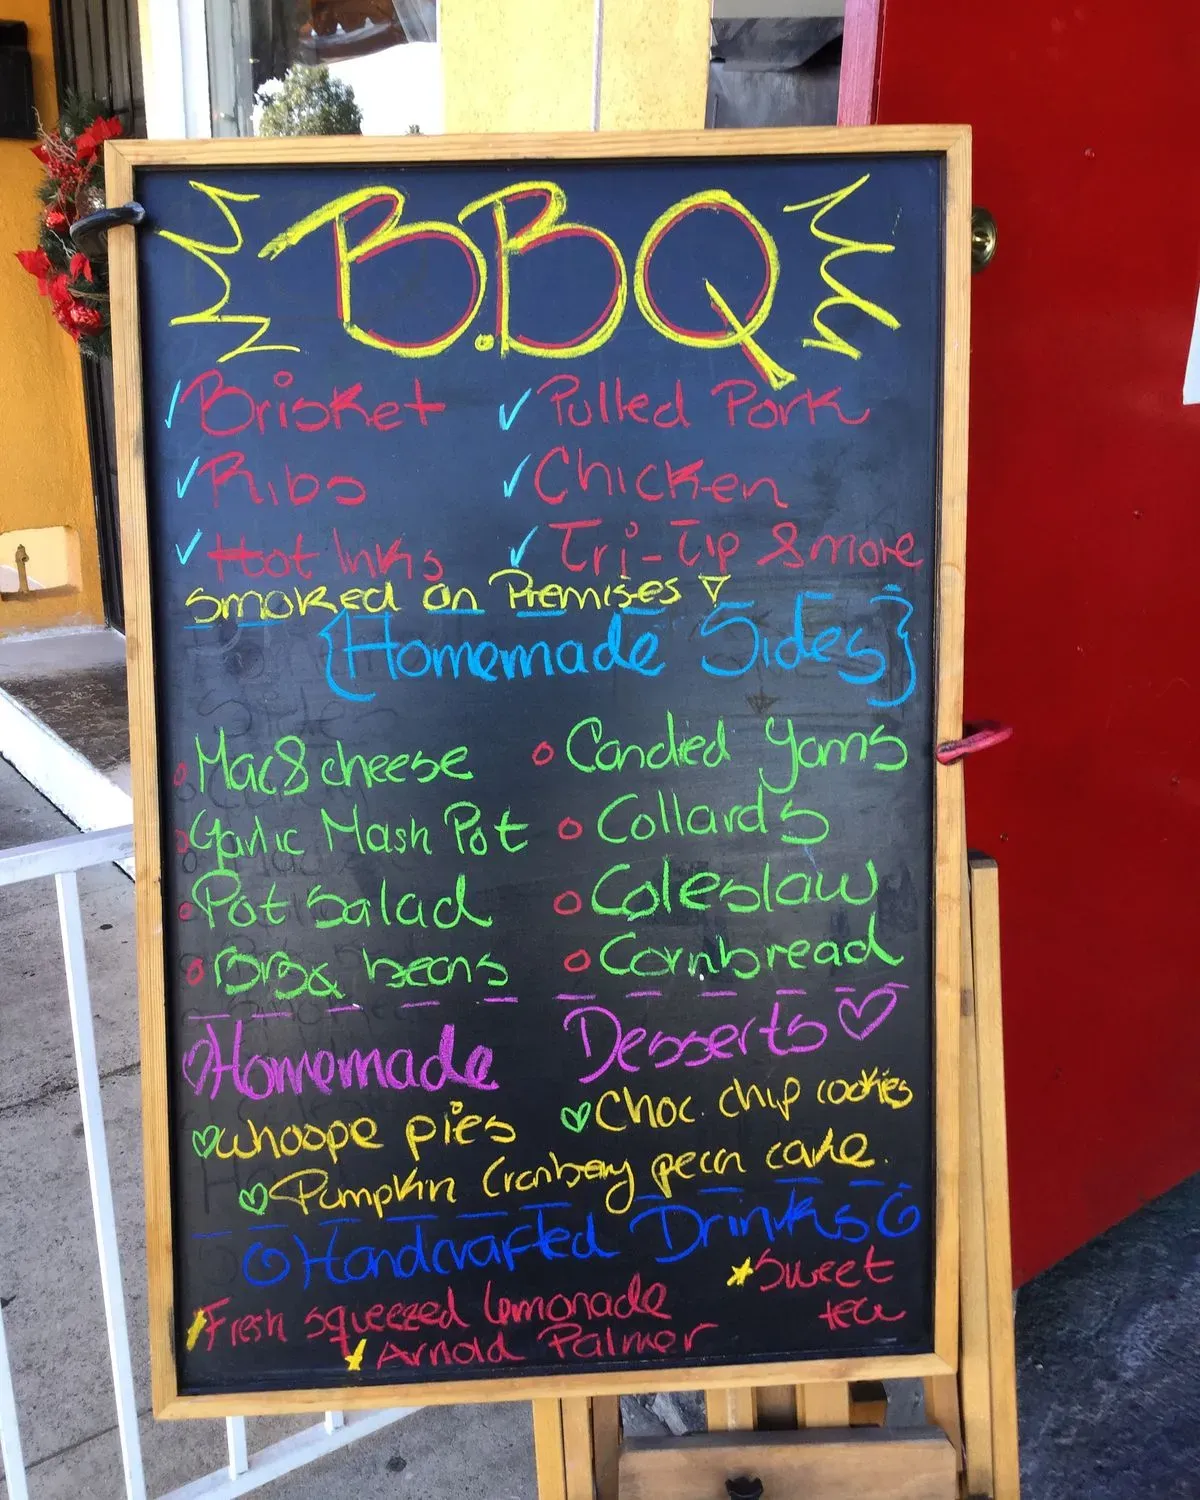 B.BQ
Brisket Pulled Pork
Ribs Chicken
Hot lnks Tri-Tip & more
Smoked on Premises
{Homemade Sides}
Mac & cheese Candied Yams
Garlic Mash Pot Collards
Pot Salad Coleslaw
BBQ beans Cornbread
Homemade Desserts
whoope pies Choc. chip cookies
Pumpkin Cranberry pecan cake.
Handcrafted Drinks
Fresh squeezed lemonade Sweet tea
Arnold Palmer